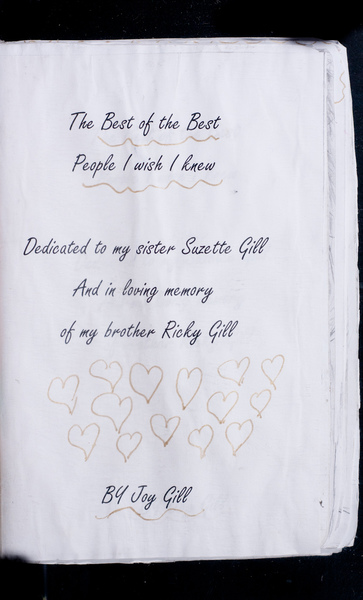 The Best of the Best
People I wish I knew
Dedicated to my sister Suzette Gill
And in loving memory
of my brother Ricky Gill
BY Joy Gill